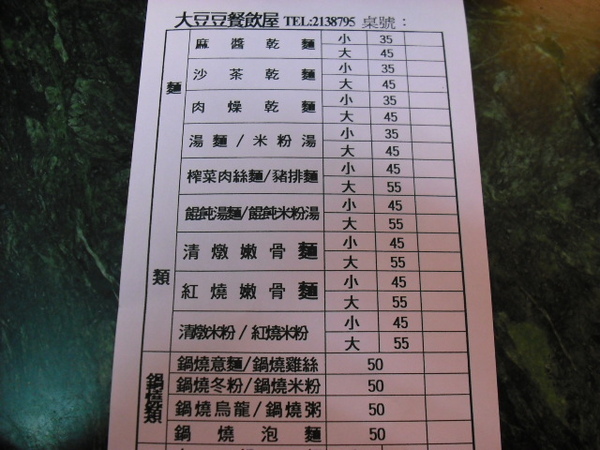 大豆豆餐飲屋 TEL:2138795 桌號：
麵類
麻醬乾麵 小 35
大 45
沙茶乾麵 小 35
大 45
肉燥乾麵 小 35
大 45
湯麵/米粉湯 小 35
大 45
榨菜肉絲麵/豬排麵 小 45
大 55
餛飩湯麵/餛飩米粉湯 小 45
大 55
清燉嫩骨麵 小 45
大 55
紅燒嫩骨麵 小 45
大 55
清燉米粉/紅燒米粉 小 45
大 55
鍋燒類
鍋燒意麵/鍋燒雞絲 50
鍋燒冬粉/鍋燒米粉 50
鍋燒烏龍/鍋燒粥 50
鍋燒泡麵 50